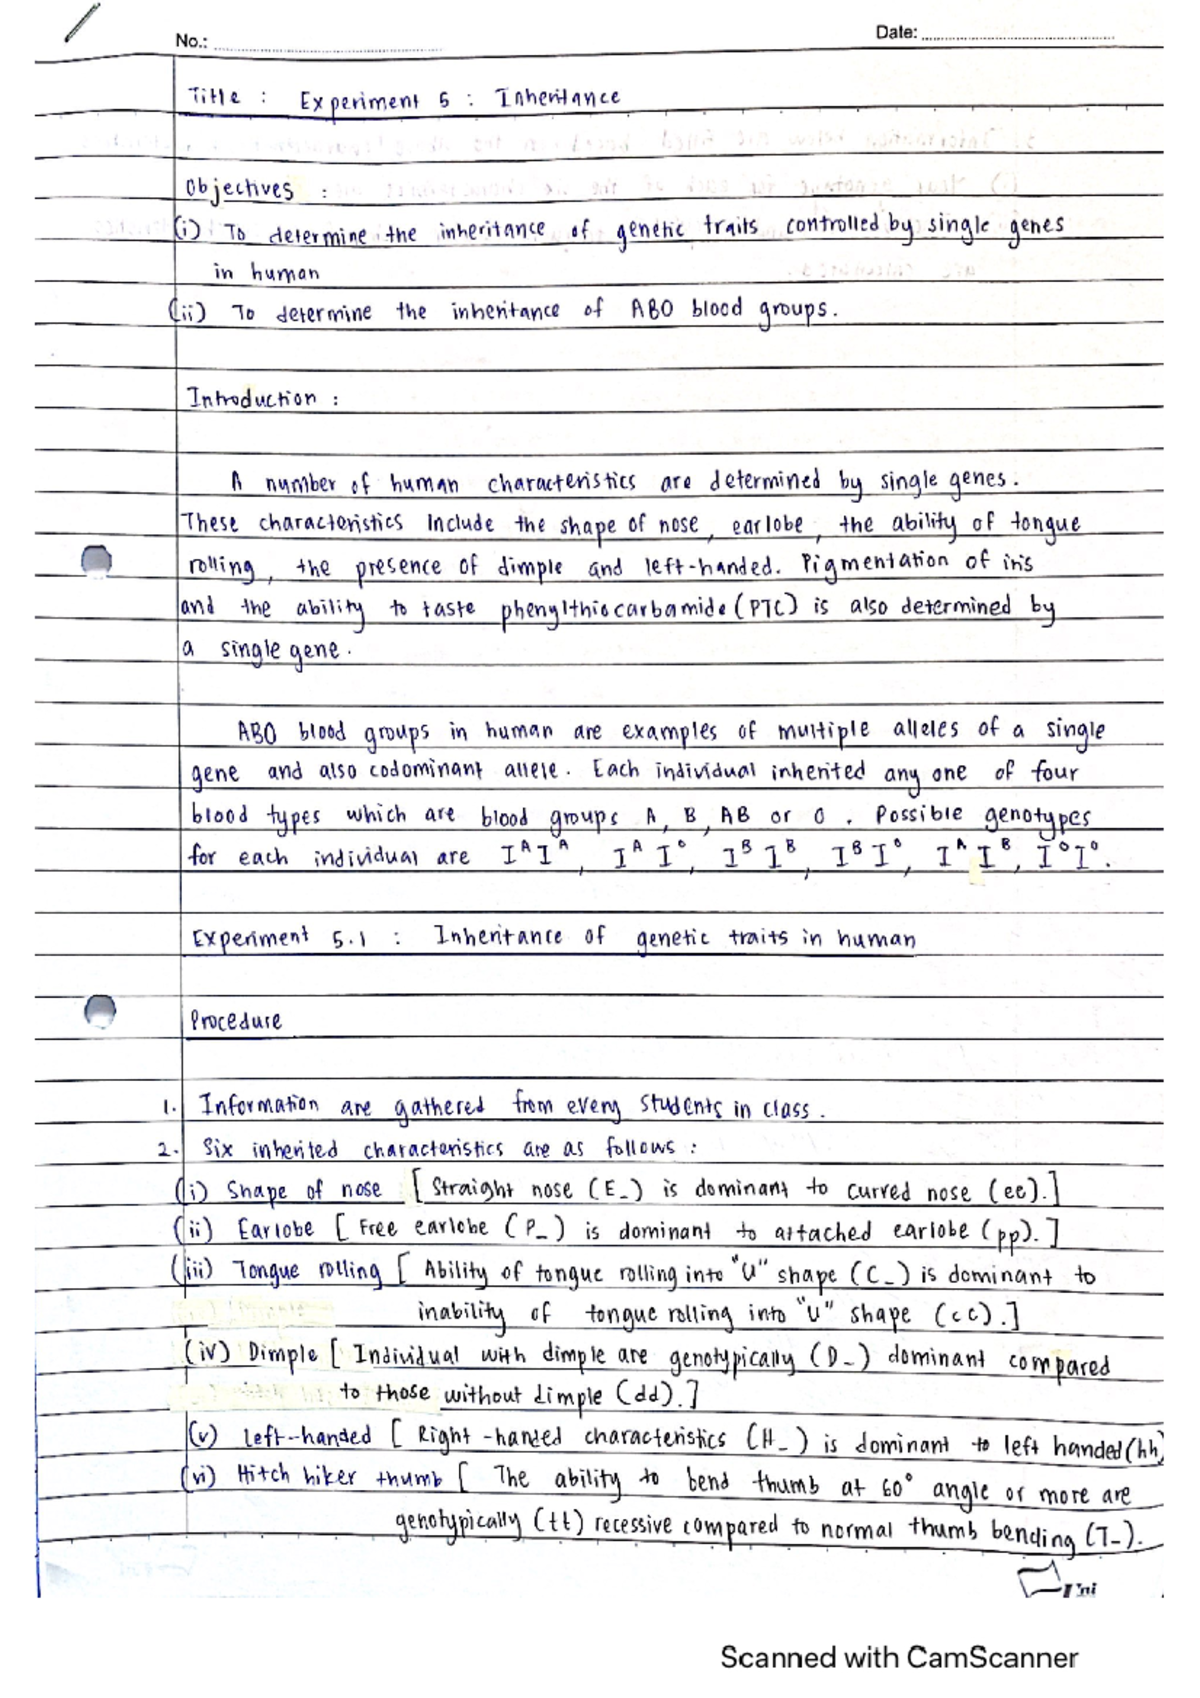 No.:
Date:
Title : Experiment 5 : Inheritance
Objectives :
(i) To determine the inheritance of genetic traits controlled by single genes
in human
(ii) To determine the inheritance of ABO blood groups.
Introduction :
A number of human characteristics are determined by single genes.
These characteristics include the shape of nose, earlobe, the ability of tongue
rolling, the presence of dimple and left-handed. Pigmentation of iris
and the ability to taste phenylthiocarbamide (PTC) is also determined by
a single gene.
ABO blood groups in human are examples of multiple alleles of a single
gene and also codominant allele. Each individual inherited any one of four
blood types which are blood groups A, B, AB or O. Possible genotypes
for each individual are Iᴬ Iᴬ, Iᴬ I°, Iᴮ Iᴮ, Iᴮ I°, Iᴬ Iᴮ, I° I°.
Experiment 5.1 : Inheritance of genetic traits in human
Procedure
1. Information are gathered from every students in class.
2. Six inherited characteristics are as follows :
(i) Shape of nose [ Straight nose (E_) is dominant to curved nose (ee).]
(ii) Earlobe [ Free earlobe (P_) is dominant to attached earlobe (pp). ]
(iii) Tongue rolling [ Ability of tongue rolling into "U" shape (C_) is dominant to
inability of tongue rolling into "U" shape (cc).]
(iv) Dimple [ Individual with dimple are genotypically (D_) dominant compared
to those without dimple (dd).]
(v) Left-handed [ Right-handed characteristics (H_) is dominant to left handed (hh)
(vi) Hitch hiker thumb [ The ability to bend thumb at 60° angle or more are
genotypically (tt) recessive compared to normal thumb bending (T_).
Uni
Scanned with CamScanner